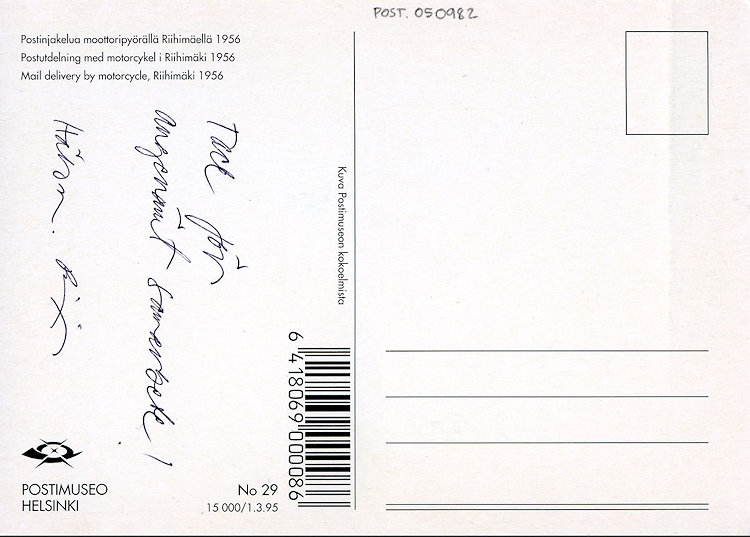 POST. 050982
Postinjakelua moottoripyörällä Riihimäellä 1956
Postutdelning med motorcykel i Riihimäki 1956
Mail delivery by motorcycle, Riihimäki 1956
Tack för
angenämt samarbete!
Hälsn.
Kuva Postimuseon kokoelmista
6 418069 000086
POSTIMUSEO
HELSINKI
No 29
15 000/1.3.95